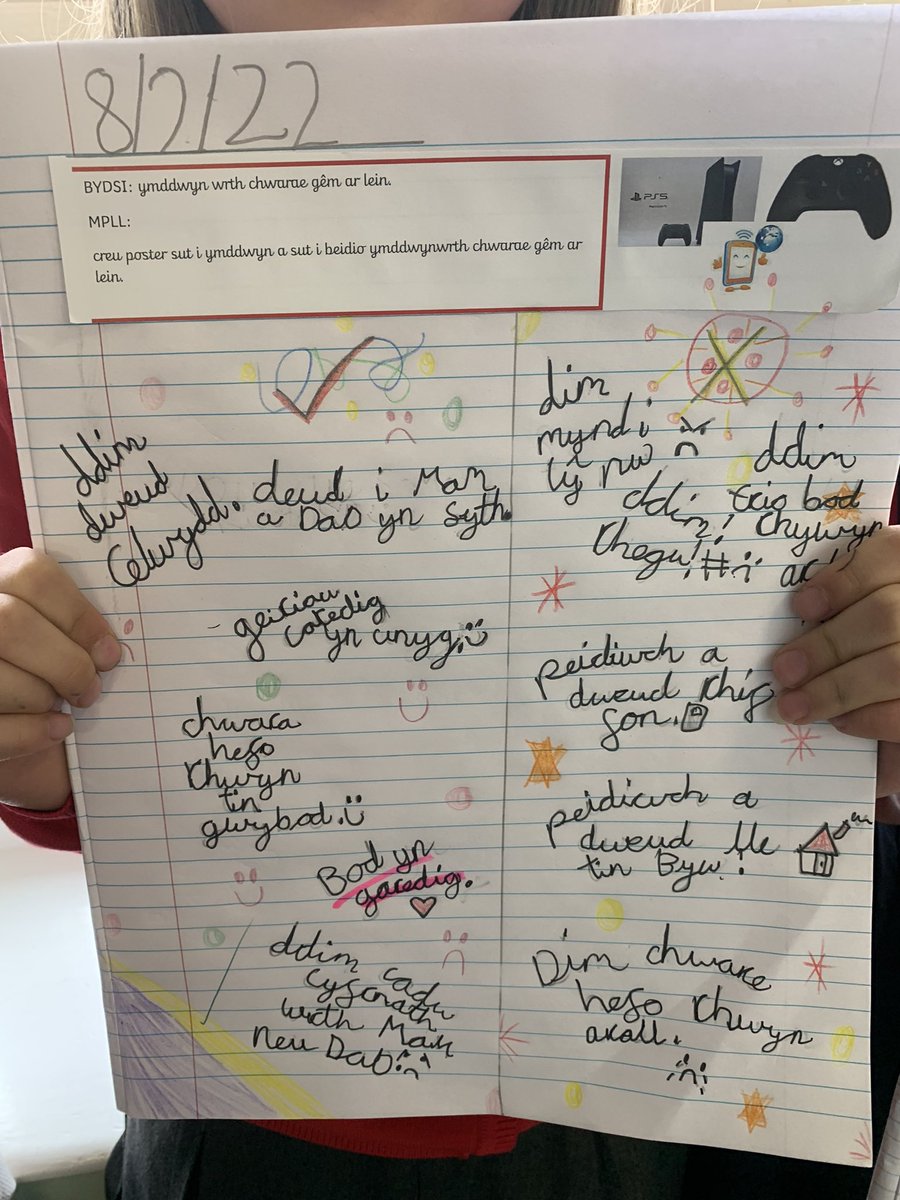 8/7/22
BYDSI: ymddwyn wrth chwarae gêm ar lein.
MPLL:
creu poster sut i ymddwyn a sut i beidio ymddwynwrth chwarae gêm ar
lein.
PS5
ddim
dweud
Celwydd.
deud i Mam
a Dad yn syth.
- geiriau
caredig
yn unyg.
chwara
hefo
rhwyn
ti'n
gwybod.
Bod yn
garedig.
ddim cadw
wrth Mam
neu Dad
dim
mynd i
tŷ nw
ddim
rhegu! #
ddim
trio bod
rhywyn
arall
peidiwch a
dweud rhif
ffon.
peidiwch a
dweud lle
ti'n Byw!
Dim chware
hefo rhwyn
arall.